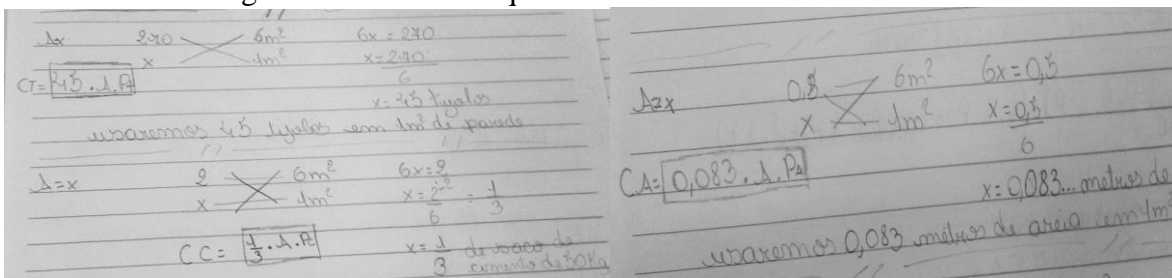 270 6m² 6x = 270
x 1m² x = 270
6
CT = 45 . A . PT
x = 45 tijolos
usaremos 45 tijolos em 1m² de parede
A = x 2 6m² 6x = 2
x 1m² x = 2÷2 = 1
6 3
CC = 1/3 . A . Pc
x = 1 de saco de
3 cimento de 50kg
A = x 0,5 6m² 6x = 0,5
x 1m² x = 0,5
6
CA = 0,083 . A . PA
x = 0,083... metros de
usaremos 0,083 metros de areia em 1m²